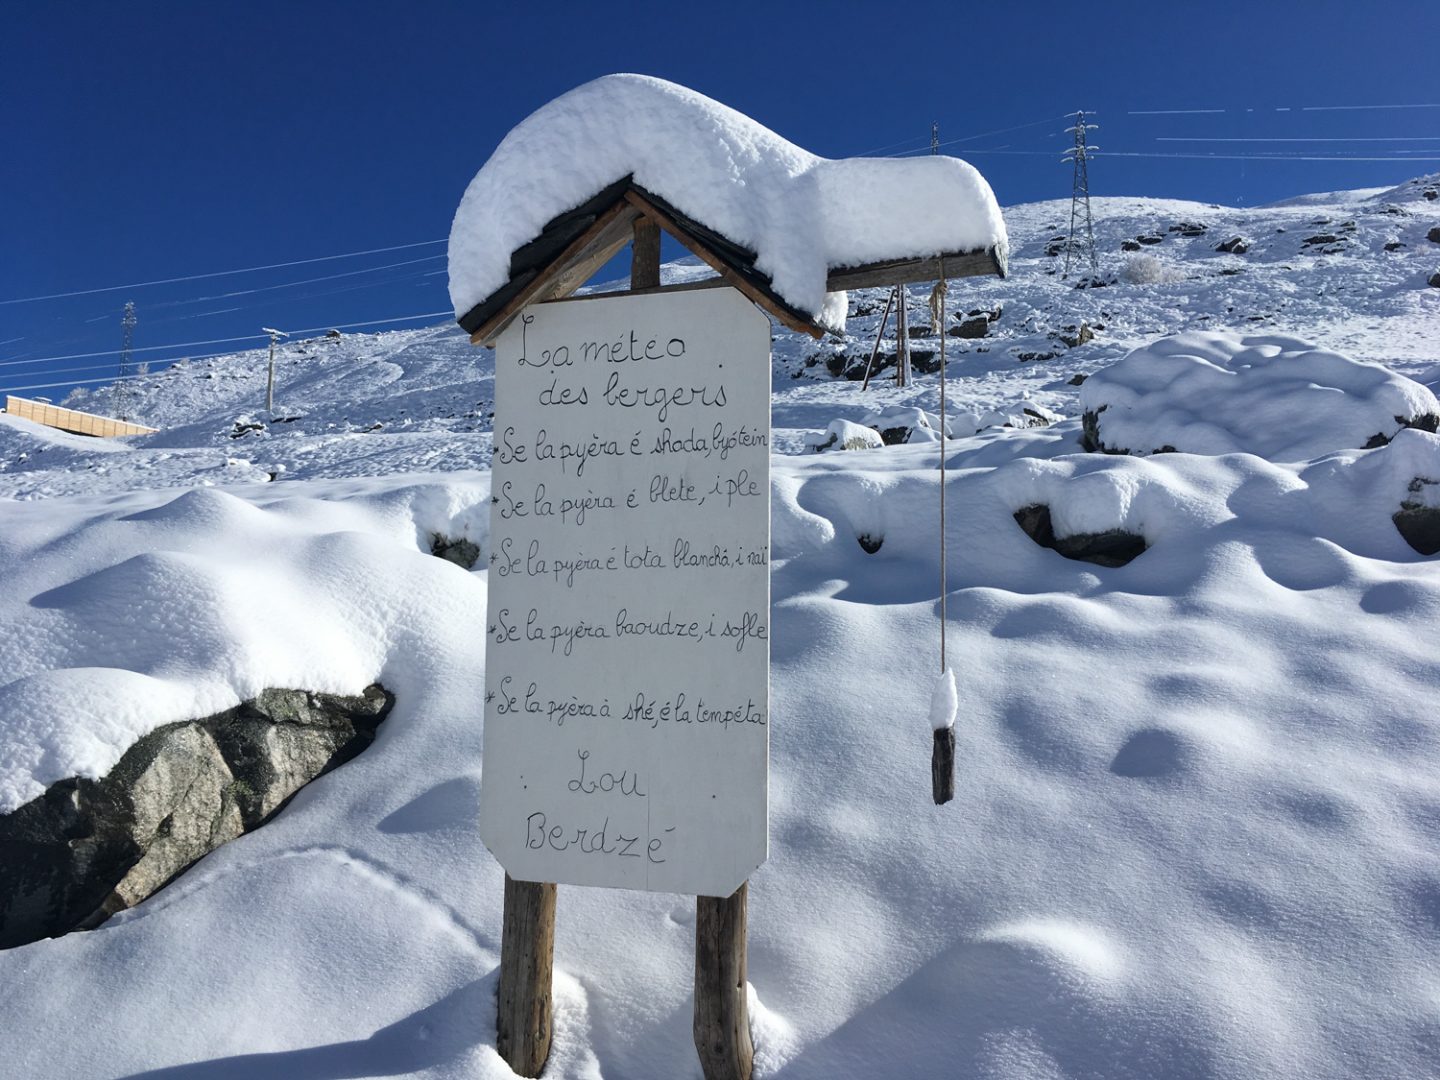 La météo
des bergers
*Se la pyèra é shada, byótein
*Se la pyèra é blete, i ple
*Se la pyèra é tota blanchà, i naï
*Se la pyèra baoudze, i sofle
*Se la pyèra à shé, é la tempéta
Lou
Berdzé